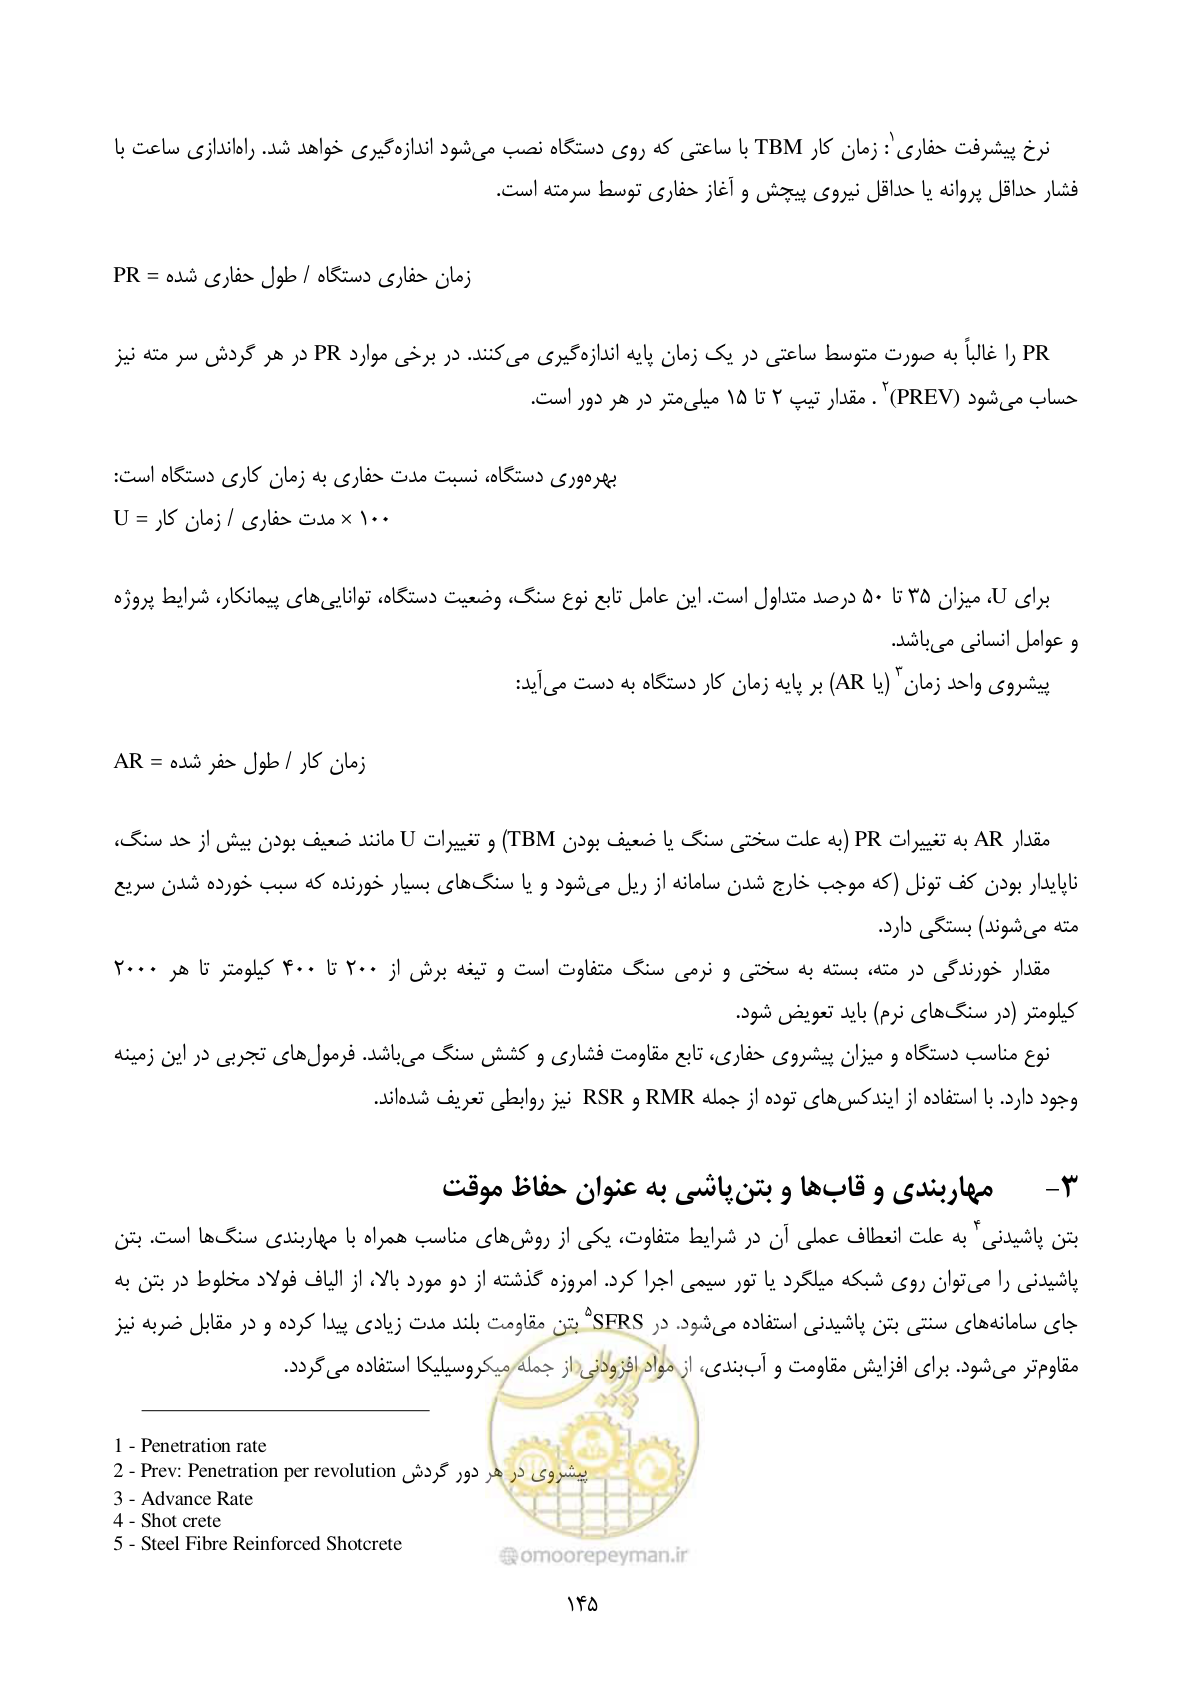 نرخ پیشرفت حفاری۱: زمان کار TBM با ساعتی که روی دستگاه نصب می‌شود اندازه‌گیری خواهد شد. راه‌اندازی ساعت با
فشار حداقل پروانه یا حداقل نیروی پیچش و آغاز حفاری توسط سرمته است.
PR = زمان حفاری دستگاه / طول حفاری شده
PR را غالباً به صورت متوسط ساعتی در یک زمان پایه اندازه‌گیری می‌کنند. در برخی موارد PR در هر گردش سر مته نیز
حساب می‌شود (PREV)۲ . مقدار تیپ ۲ تا ۱۵ میلی‌متر در هر دور است.
بهره‌وری دستگاه، نسبت مدت حفاری به زمان کاری دستگاه است:
U = مدت حفاری / زمان کار × ۱۰۰
برای U، میزان ۳۵ تا ۵۰ درصد متداول است. این عامل تابع نوع سنگ، وضعیت دستگاه، توانایی‌های پیمانکار، شرایط پروژه
و عوامل انسانی می‌باشد.
پیشروی واحد زمان۳ (یا AR) بر پایه زمان کار دستگاه به دست می‌آید:
AR = زمان کار / طول حفر شده
مقدار AR به تغییرات PR (به علت سختی سنگ یا ضعیف بودن TBM) و تغییرات U مانند ضعیف بودن بیش از حد سنگ،
ناپایدار بودن کف تونل (که موجب خارج شدن سامانه از ریل می‌شود و یا سنگ‌های بسیار خورنده که سبب خورده شدن سریع
مته می‌شوند) بستگی دارد.
مقدار خورندگی در مته، بسته به سختی و نرمی سنگ متفاوت است و تیغه برش از ۲۰۰ تا ۴۰۰ کیلومتر تا هر ۲۰۰۰
کیلومتر (در سنگ‌های نرم) باید تعویض شود.
نوع مناسب دستگاه و میزان پیشروی حفاری، تابع مقاومت فشاری و کشش سنگ می‌باشد. فرمول‌های تجربی در این زمینه
وجود دارد. با استفاده از ایندکس‌های توده از جمله RMR و RSR نیز روابطی تعریف شده‌اند.
۳- مهاربندی و قاب‌ها و بتن‌پاشی به عنوان حفاظ موقت
بتن پاشیدنی۴ به علت انعطاف عملی آن در شرایط متفاوت، یکی از روش‌های مناسب همراه با مهاربندی سنگ‌ها است. بتن
پاشیدنی را می‌توان روی شبکه میلگرد یا تور سیمی اجرا کرد. امروزه گذشته از دو مورد بالا، از الیاف فولاد مخلوط در بتن به
جای سامانه‌های سنتی بتن پاشیدنی استفاده می‌شود. در SFRS۵ بتن مقاومت بلند مدت زیادی پیدا کرده و در مقابل ضربه نیز
مقاوم‌تر می‌شود. برای افزایش مقاومت و آب‌بندی، از مواد افزودنی از جمله میکروسیلیکا استفاده می‌گردد.
1 - Penetration rate
2 - Prev: Penetration per revolution پیشروی در هر دور گردش
3 - Advance Rate
4 - Shot crete
5 - Steel Fibre Reinforced Shotcrete
@omoorepeyman.ir
۱۴۵